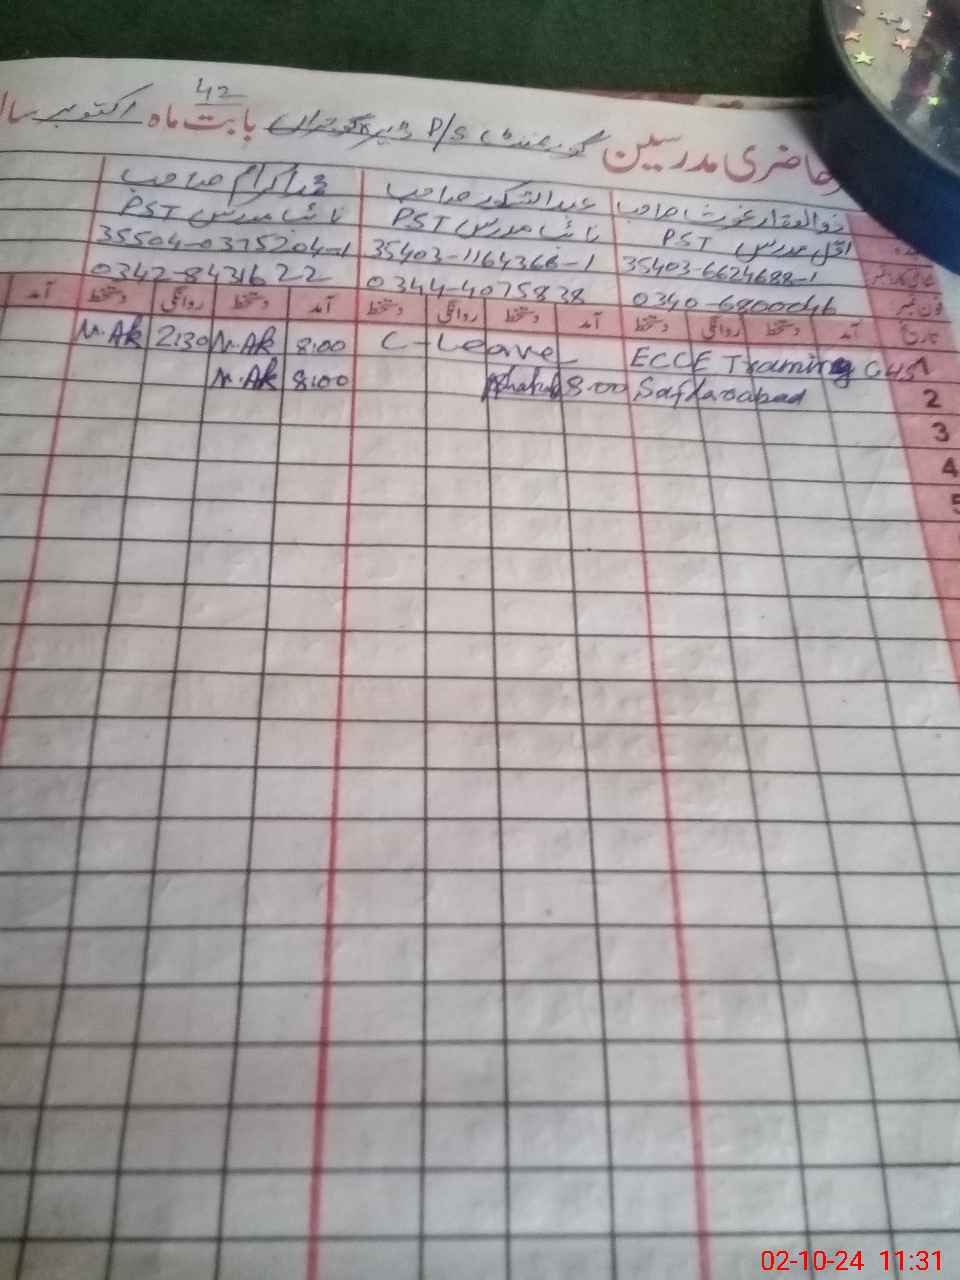 42
حاضری مدرسین گورنمنٹ P/S بابت ماہ اکتوبر
ذوالفقار غوث صاحب عبدالشکور صاحب محمد اکرام صاحب
مدرس PST نائب مدرس PST نائب مدرس PST
35403-6624688-1 35403-1164366-1 35504-0375204-1
فون نمبر 0340-6800046 0344-4075838 0342-8431622
تاریخ آمد دستخط روانگی دستخط آمد دستخط روانگی دستخط آمد دستخط روانگی دستخط آمد
1 ECCE Training GHS C-Leave 8:00 M.AK 2:30 M.AK
2 Safdarabad 8:00 8:00 M.AK
3
4
5
02-10-24 11:31